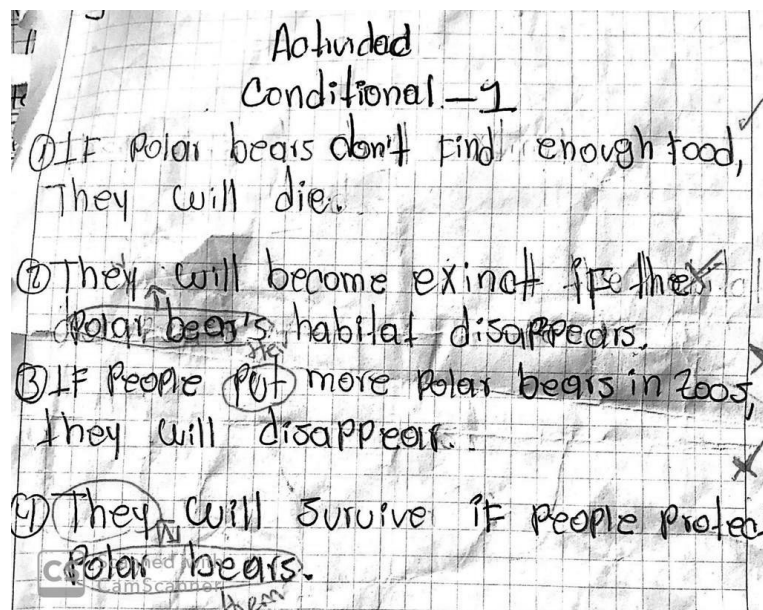 Actividad
Conditional - 1
① IF Polar bears don't Find enough food,
They will die.
② They will become exinct if the
Polar bear's habitat disappears.
③ IF People put more Polar bears in zoos,
they will disappear.
④ They will survive if people protec
Polar bears.
them
CS CamScanner